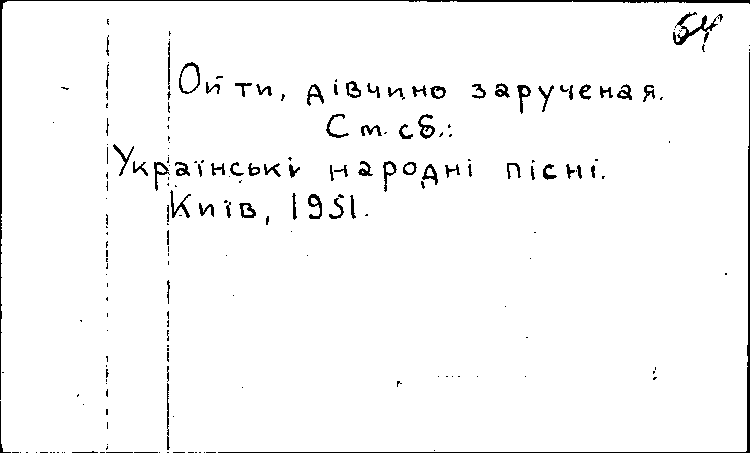 64
Ой ти, дівчино зарученая.
См. сб.:
Українські народні пісні.
Київ, 1951.